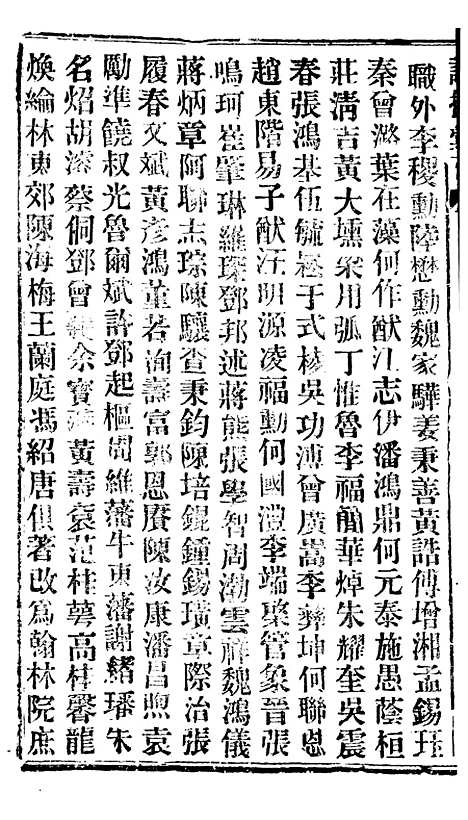 職外李稷勳陸懋勳魏家驊姜秉善黃誥傅增湘孟錫珏
秦曾潞葉在藻何作猷江志伊潘鴻鼎何元泰施愚蔭桓
莊清吉黃大壎梁用弧丁惟魯李福簡華焯朱耀奎吳震
春張鴻基伍毓崧于式棱吳功溥曾廣嵩李彝坤何聯恩
趙東階易子猷汪明源凌福勳何國澧李端棨管象晉張
鳴珂崔肇琳羅琛鄧邦述蔣熊張學智周渤雲祥魏鴻儀
蔣炳章阿聯志琮陳驤查秉鈞陳培錕鍾錫璜章際治張
履春文斌黃彥鴻董若洵壽富郭恩賡陳汝康潘昌煦袁
勵準饒叔光魯爾斌許鄧起樞周維藩牛東藩謝緒璠朱
名炤胡濬蔡侗鄧曾余寶黃壽袞范桂萼高桂馨龍
煥綸林東郊陳海梅王蘭庭馮紹唐俱著改爲翰林院庶